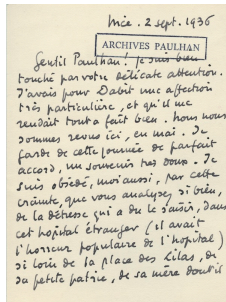 Nice. 2 sept. 1936
ARCHIVES PAULHAN
Gentil Paulhan! je suis bien
touché par votre délicate attention.
J'avais pour Dabit une affection
très particulière, et qu'il me
rendait tout à fait bien. Nous nous
sommes revus ici, en mai. Je
garde de cette journée de parfait
accord, un souvenir très doux. Je
suis obsédé, moi aussi, par cette
crainte, que vous analysez si bien,
de la détresse qui a dû le saisir, dans
cet hôpital étranger (il avait
l'horreur populaire de l'hôpital)
si loin de la place des Lilas, de
sa petite patrie, de sa mère dont il